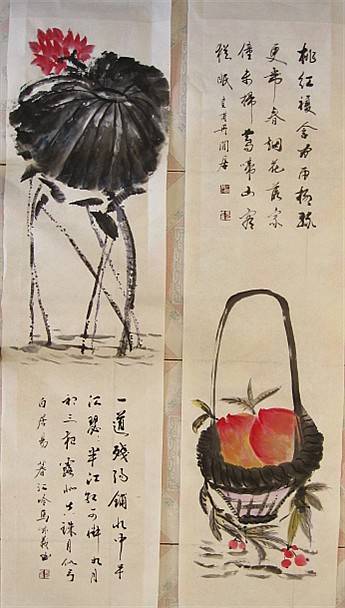 桃红複含宿雨柳绿
更带春烟花落家
僮未掃莺啼山客
猶眠
一道残阳铺水中半
江瑟々半江红可怜九月
初三夜露似真珠月似弓
白居易暮江吟馬